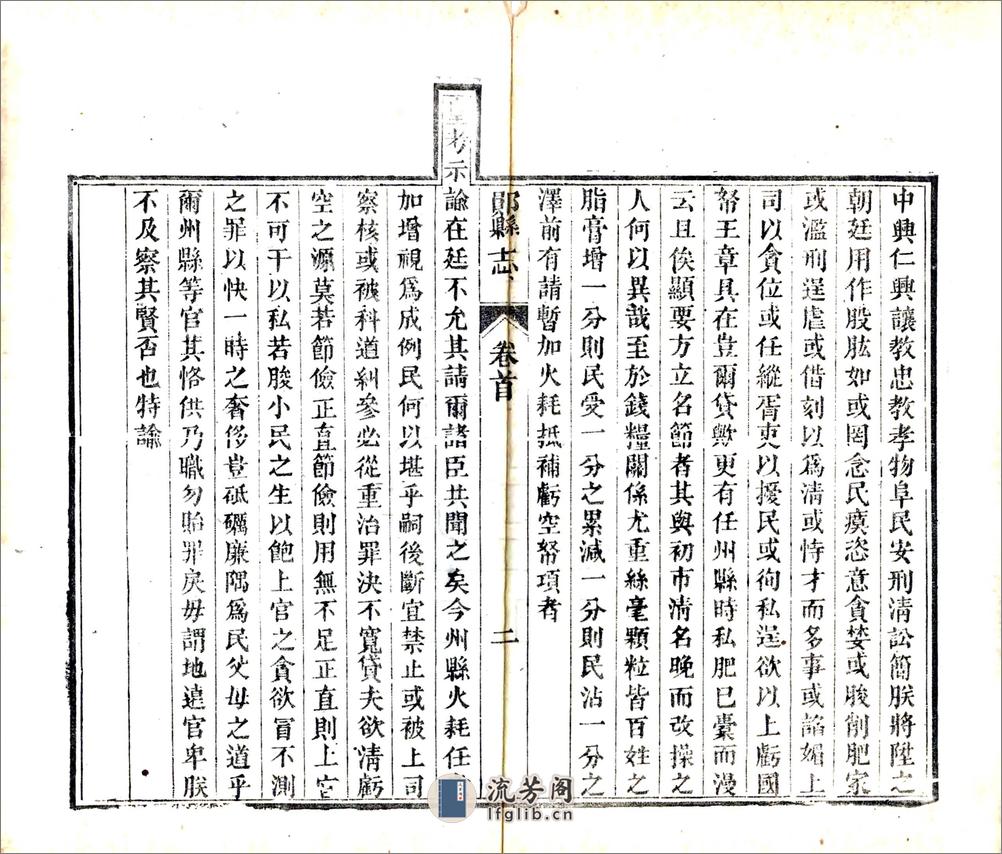 中興仁興讓教忠教孝物阜民安刑清訟簡朕將陞之
朝廷用作股肱如或罔念民瘼恣意貪婪或朘削肥家
或濫刑逞虐或借刻以爲清或恃才而多事或諂媚上
司以貪位或任縱胥吏以擾民或徇私逞欲以上虧國
帑王章具在豈爾貸歟更有任州縣時私肥已橐而漫
云且俟顯要方立名節者其與初市清名晚而改操之
人何以異哉至於錢糧關係尤重絲毫顆粒皆百姓之
脂膏增一分則民受一分之累減一分則民沾一分之
澤前有請暫加火耗抵補虧空帑項者
郎縣志
卷首
二
皇考示諭在廷不允其請爾諸臣共聞之矣今州縣火耗任
加增視爲成例民何以堪乎嗣後斷宜禁止或被上司
察核或被科道糾參必從重治罪決不寬貸夫欲清虧
空之源莫若節儉正直節儉則用無不足正直則上官
不可干以私若朘小民之生以飽上官之貪欲冒不測
之罪以快一時之奢侈豈砥礪廉隅爲民父母之道乎
爾州縣等官其恪供乃職勿貽罪戾毋謂地遠官卑朕
不及察其賢否也特諭
流芳阁
lfglib.cn